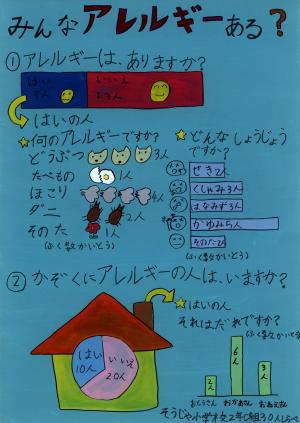 みんなアレルギーある?
①アレルギーは、ありますか?
はい
いいえ
はいの人
★何のアレルギーですか?
どうぶつ 3人
たべもの 1人
ほこり 4人
ダニ 2人
そのた 1人
(ふく数かいとう)
★どんなしょうじょう
ですか?
くしゃみ3人
はなみず3人
かゆみ5人
(ふく数かいとう)
②かぞくにアレルギーの人は、いますか?
はい
10人
いいえ
20人
★はいの人
それはだれですか?
(ふく数かいとう)
2人
6人
3人
おとうさん
おかあさん
おねえさん
そうじゃ小学校2年C組30人しらべ